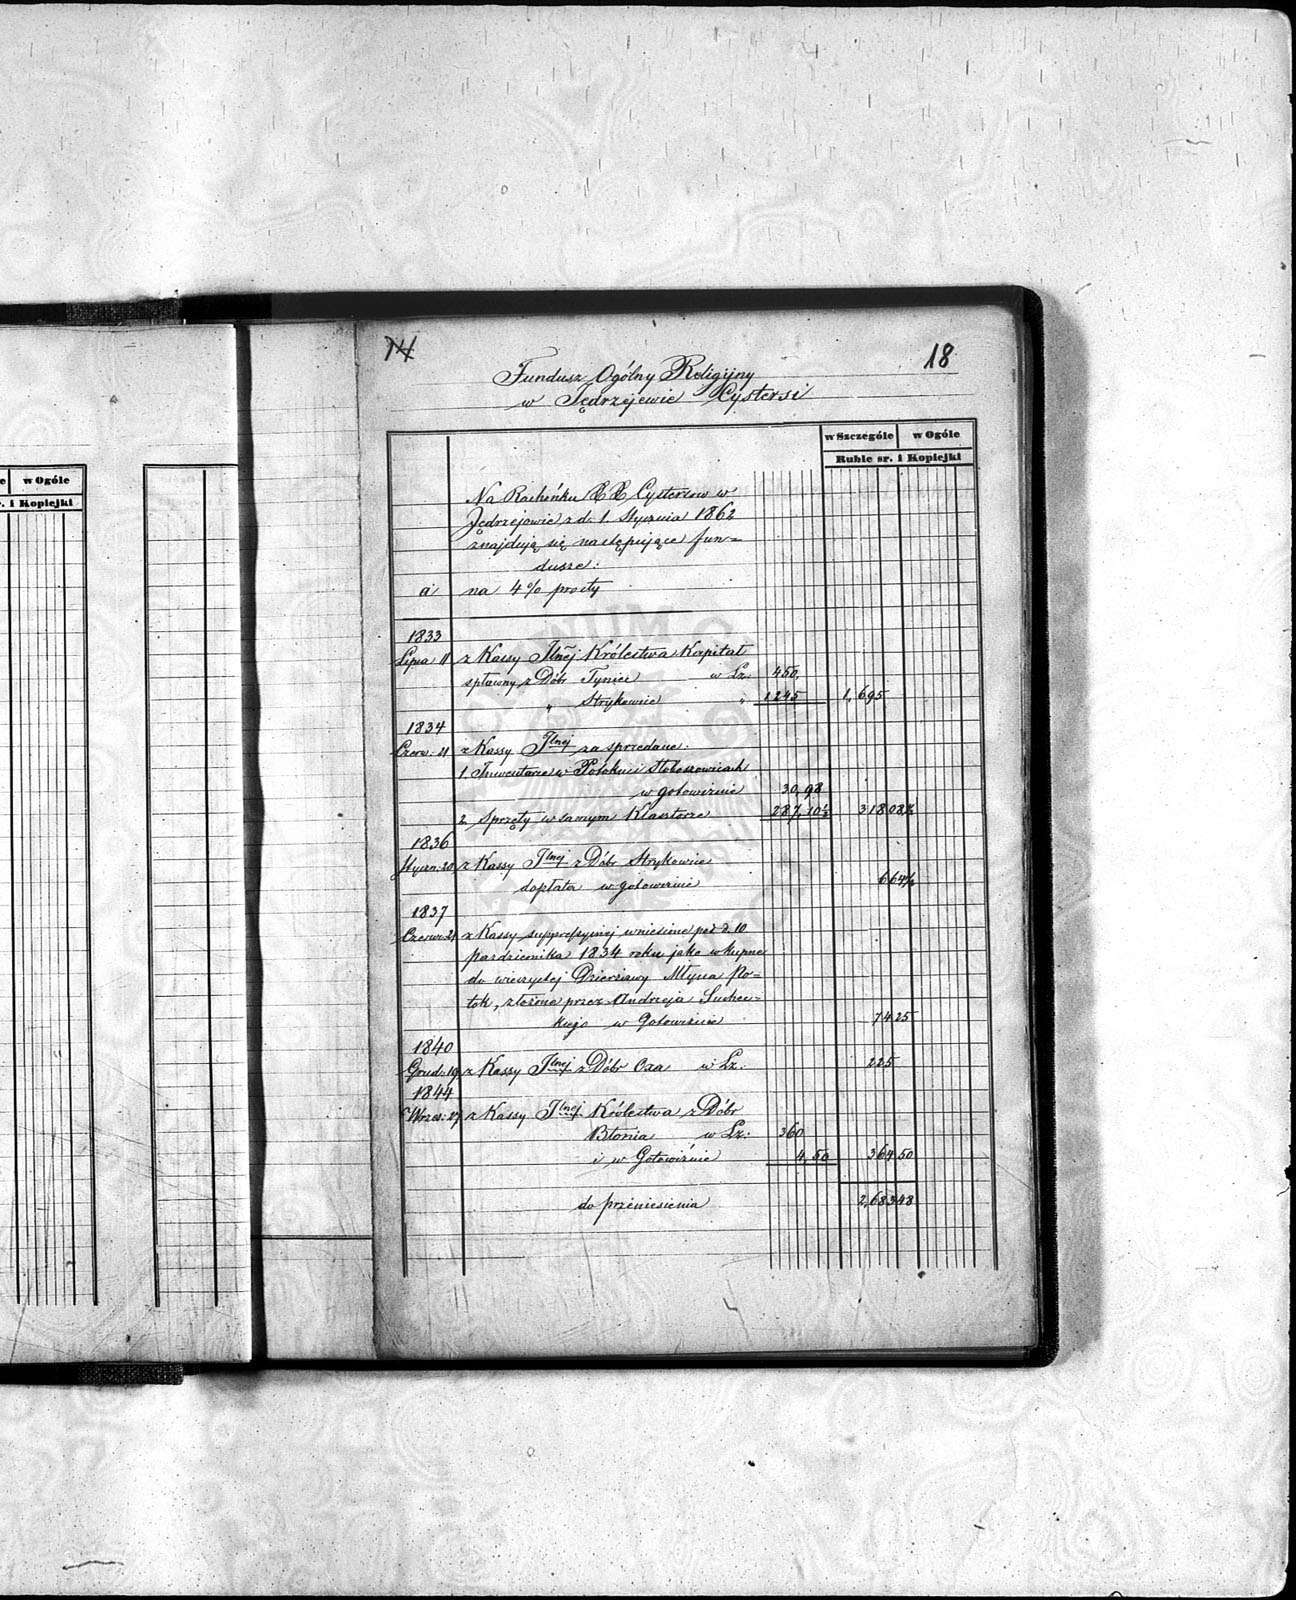 e w Ogóle
r. i Kopiejki
14
18
Fundusz Ogólny Religijny
w Jędrzejewie Cystersi
w Szczególe w Ogóle
Ruble sr. i Kopiejki
Na Rachónku XX Cystersow w
Jędrzejowie z d. 1. Stycznia 1862
znajdują się następujące fun=
dusze:
a na 4% procty
1833
Lipca 11 z Kassy Jlnéj Królestwa Kapitał
spławny z Dóbr Tyniec w Lz. 450,
" Strykowice " 1245 1,695
1834
Czerw: 21 z Kassy Jlnej za sprzedane.
1. Inwentarze w Potoku i
w gotowiznie 30,98
2 Sprzęty w samym Klasztorze 287,10½ 318 08½
1836
Stycz: 20 z Kassy Jlnej z Dóbr Strykowice
dopłata w gotowiznie 6 64½
1837
Czerwc 21 z Kassy suppressyjnej wniesione pod d. 10
pazdziernika 1834 roku jako wkupne
do wieczystej Dzierżawy Młyna Po=
tok, złożone przez Andrzeja Suchec=
kiego w Gotowiznie 74 25
1840
Grud: 19 z Kassy Jlnej z Dóbr Oxa w Lz. 225
1844
Wrzes: 27 z Kassy Jlnej Królestwa z Dóbr
Błonia w Lz: 360
i w Gotowiznie 4,50 364 50
do przeniesienia 2,683 48